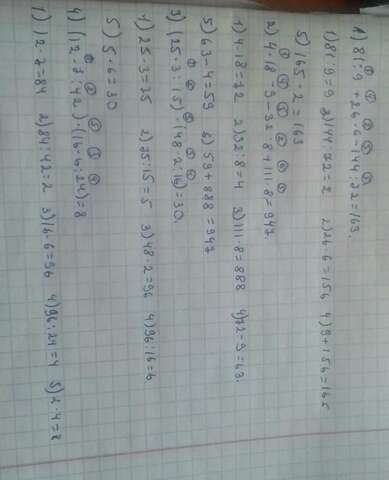 1) 81:9+26·6-144:72=163.
1) 81:9=9 2) 144:72=2 3) 26·6=156 4) 9+156=165
5) 165-2=163
2) 4·18-9-32:8+111·8=947.
1) 4·18=72 2) 32:8=4 3) 111·8=888 4) 72-9=63
5) 63-4=59 6) 59+888=947
3) (25·3:15)·(48·2:16)=30.
1) 25·3=75 2) 75:15=5 3) 48·2=96 4) 96:16=6
5) 5·6=30
4) (12·7:42)·(16·6:24)=8
1) 12·7=84 2) 84:42=2 3) 16·6=96 4) 96:24=4 5) 2·4=8